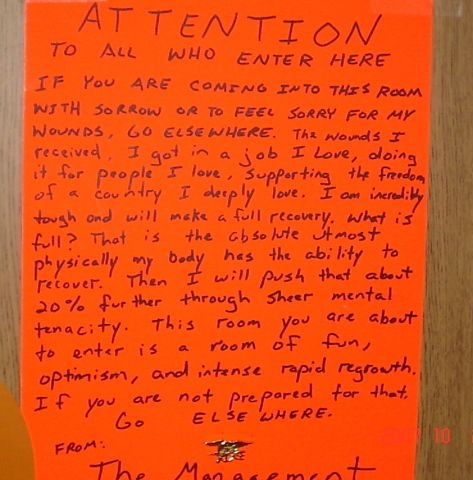 ATTENTION
TO ALL WHO ENTER HERE
IF YOU ARE COMING INTO THIS ROOM
WITH SORROW OR TO FEEL SORRY FOR MY
WOUNDS, GO ELSEWHERE. The wounds I
received, I got in a job I love, doing
it for people I love, supporting the freedom
of a country I deeply love. I am incredibly
tough and will make a full recovery. What is
full? That is the absolute utmost
physically my body has the ability to
recover. Then I will push that about
20% further through sheer mental
tenacity. This room you are about
to enter is a room of fun,
optimism, and intense rapid regrowth.
If you are not prepared for that,
Go ELSEWHERE.
FROM:
The Management
10